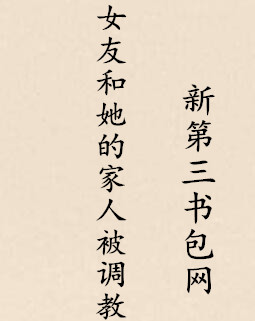 新第三书包网
女友和她的家人被调教